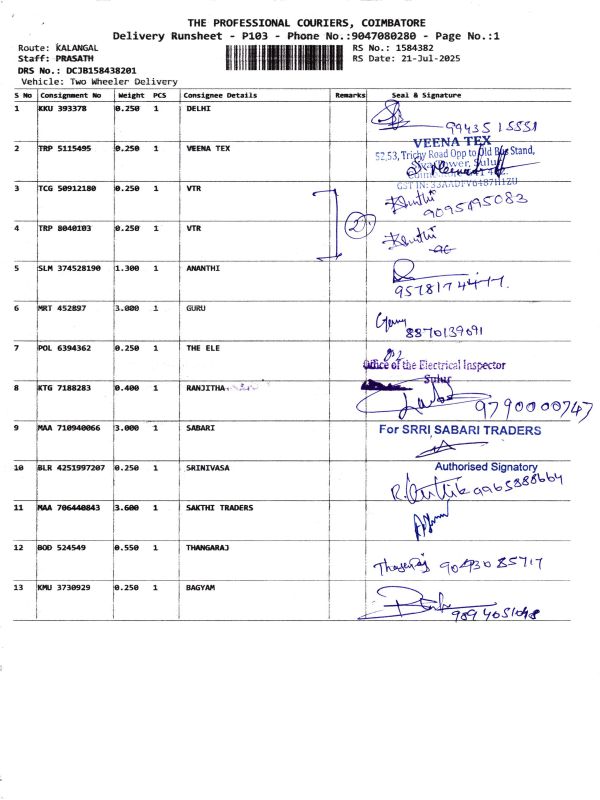 THE PROFESSIONAL COURIERS, COIMBATORE
Delivery Runsheet - P103 - Phone No.:9047080280 - Page No.:1
Route: KALANGAL RS No.: 1584382
Staff: PRASATH RS Date: 21-Jul-2025
DRS No.: DCJB158438201
Vehicle: Two Wheeler Delivery
S No Consignment No Weight PCS Consignee Details Remarks Seal & Signature
1 KKU 393378 0.250 1 DELHI
99435 15551
2 TRP 5115495 0.250 1 VEENA TEX
VEENA TEX
52,53, Trichy Road Opp to Old Bus Stand,
Sulur
GST IN: 33AADFV6487H1ZU
3 TCG 50912180 0.250 1 VTR
9095195083
2
4 TRP 8040103 0.250 1 VTR
5 SLM 374528190 1.300 1 ANANTHI
9578174477
6 MRT 452897 3.000 1 GURU
8870139691
7 POL 6394362 0.250 1 THE ELE
Office of the Electrical Inspector
Sulur
8 KTG 7188283 0.400 1 RANJITHA
9790000747
9 MAA 710940066 3.000 1 SABARI
For SRRI SABARI TRADERS
Authorised Signatory
10 BLR 4251997207 0.250 1 SRINIVASA
R. Karthik 9965888664
11 MAA 706440843 3.600 1 SAKTHI TRADERS
12 BOD 524549 0.550 1 THANGARAJ
90430 85717
13 KMU 3730929 0.250 1 BAGYAM
9894051048